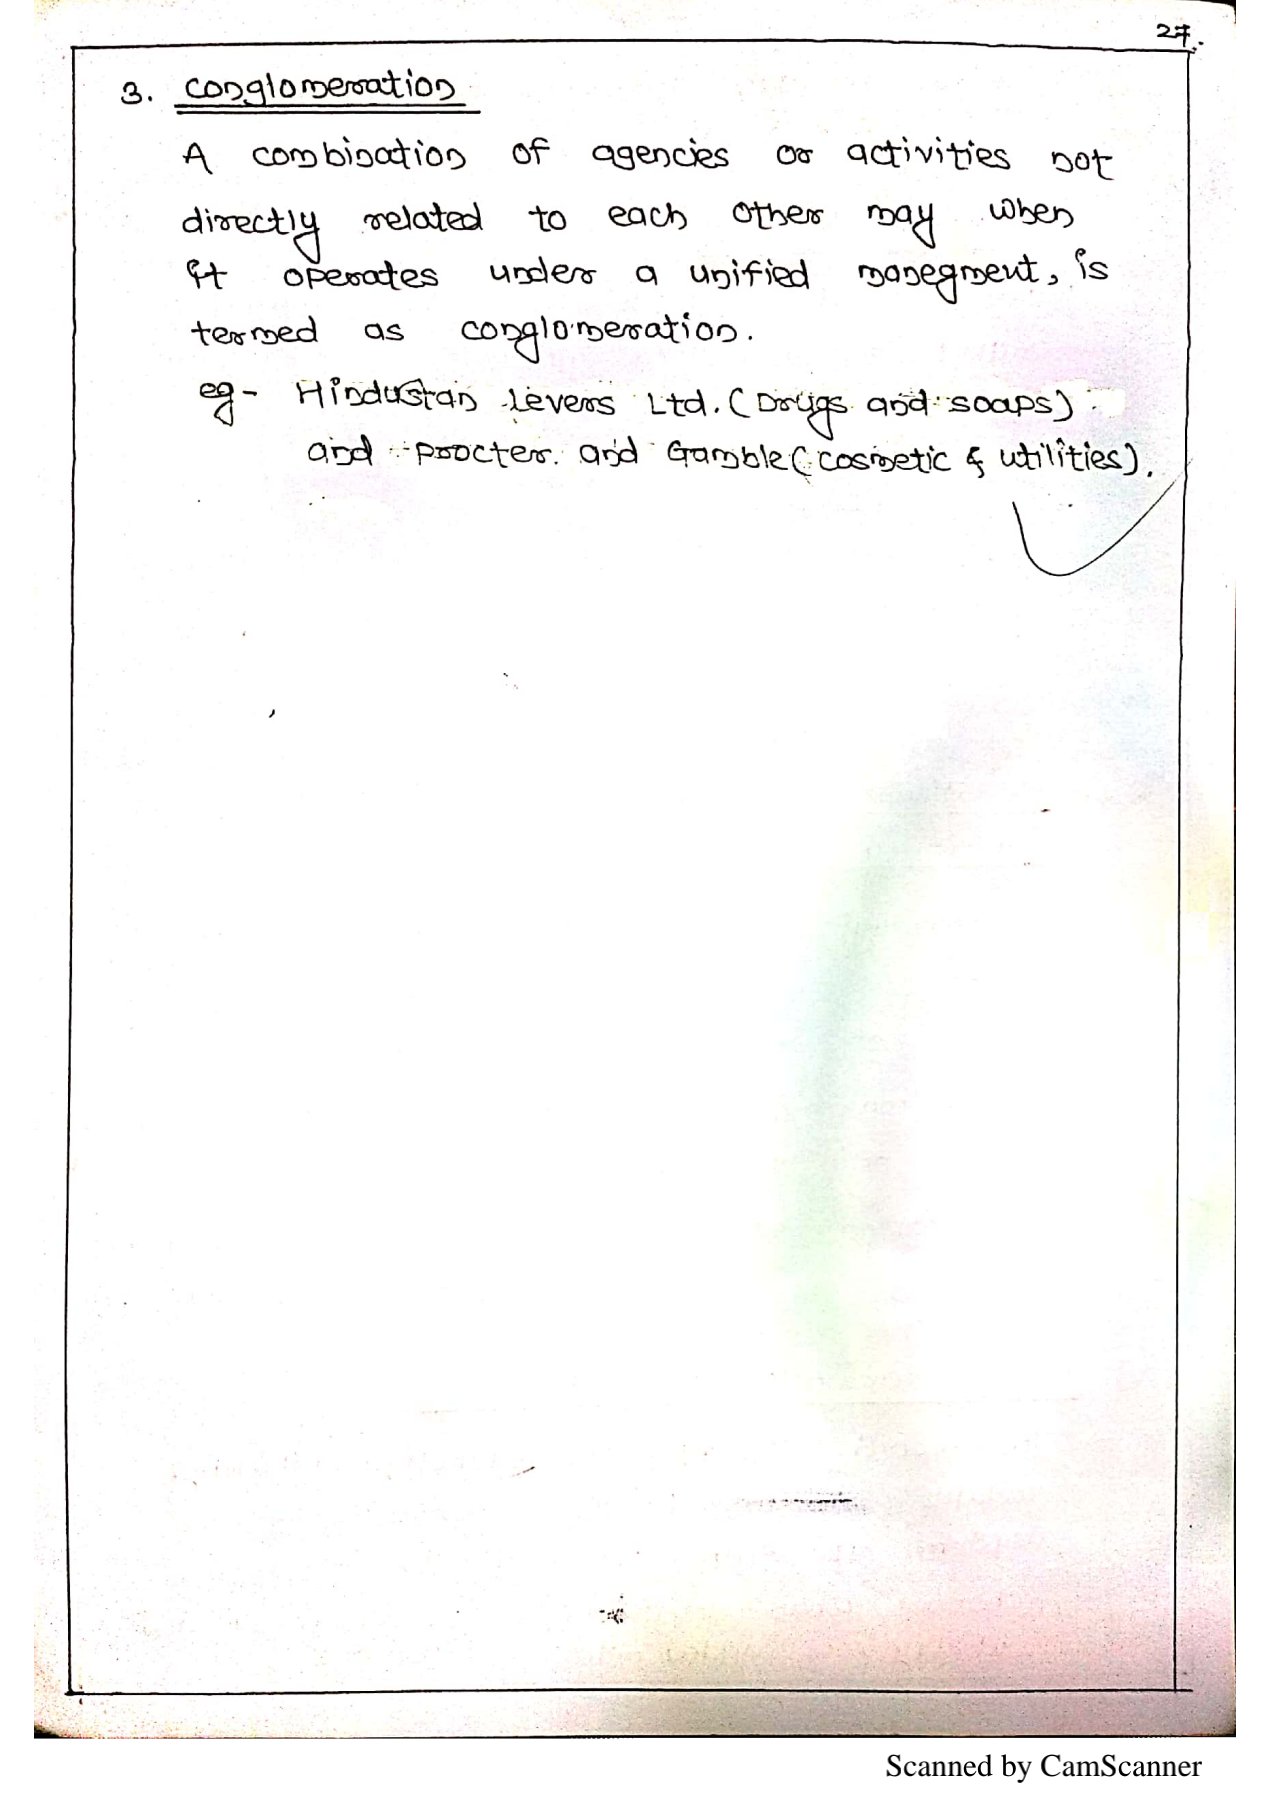 27.
3. Conglomeration
A combination of agencies or activities not
directly related to each other may when
it operates under a unified manegment, is
termed as conglomeration.
eg- Hindustan Levers Ltd. (Drugs and soaps)
and procter. and Gamble (cosmetic & utilities).
Scanned by CamScanner